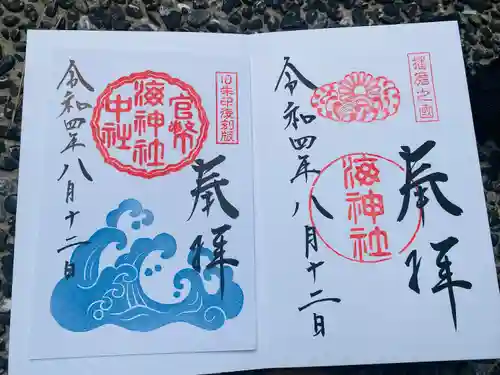 播磨之國
奉拝
海神社
令和四年八月十二日
旧朱印復刻版
奉拝
官幣
海神社
中社
令和四年八月十二日